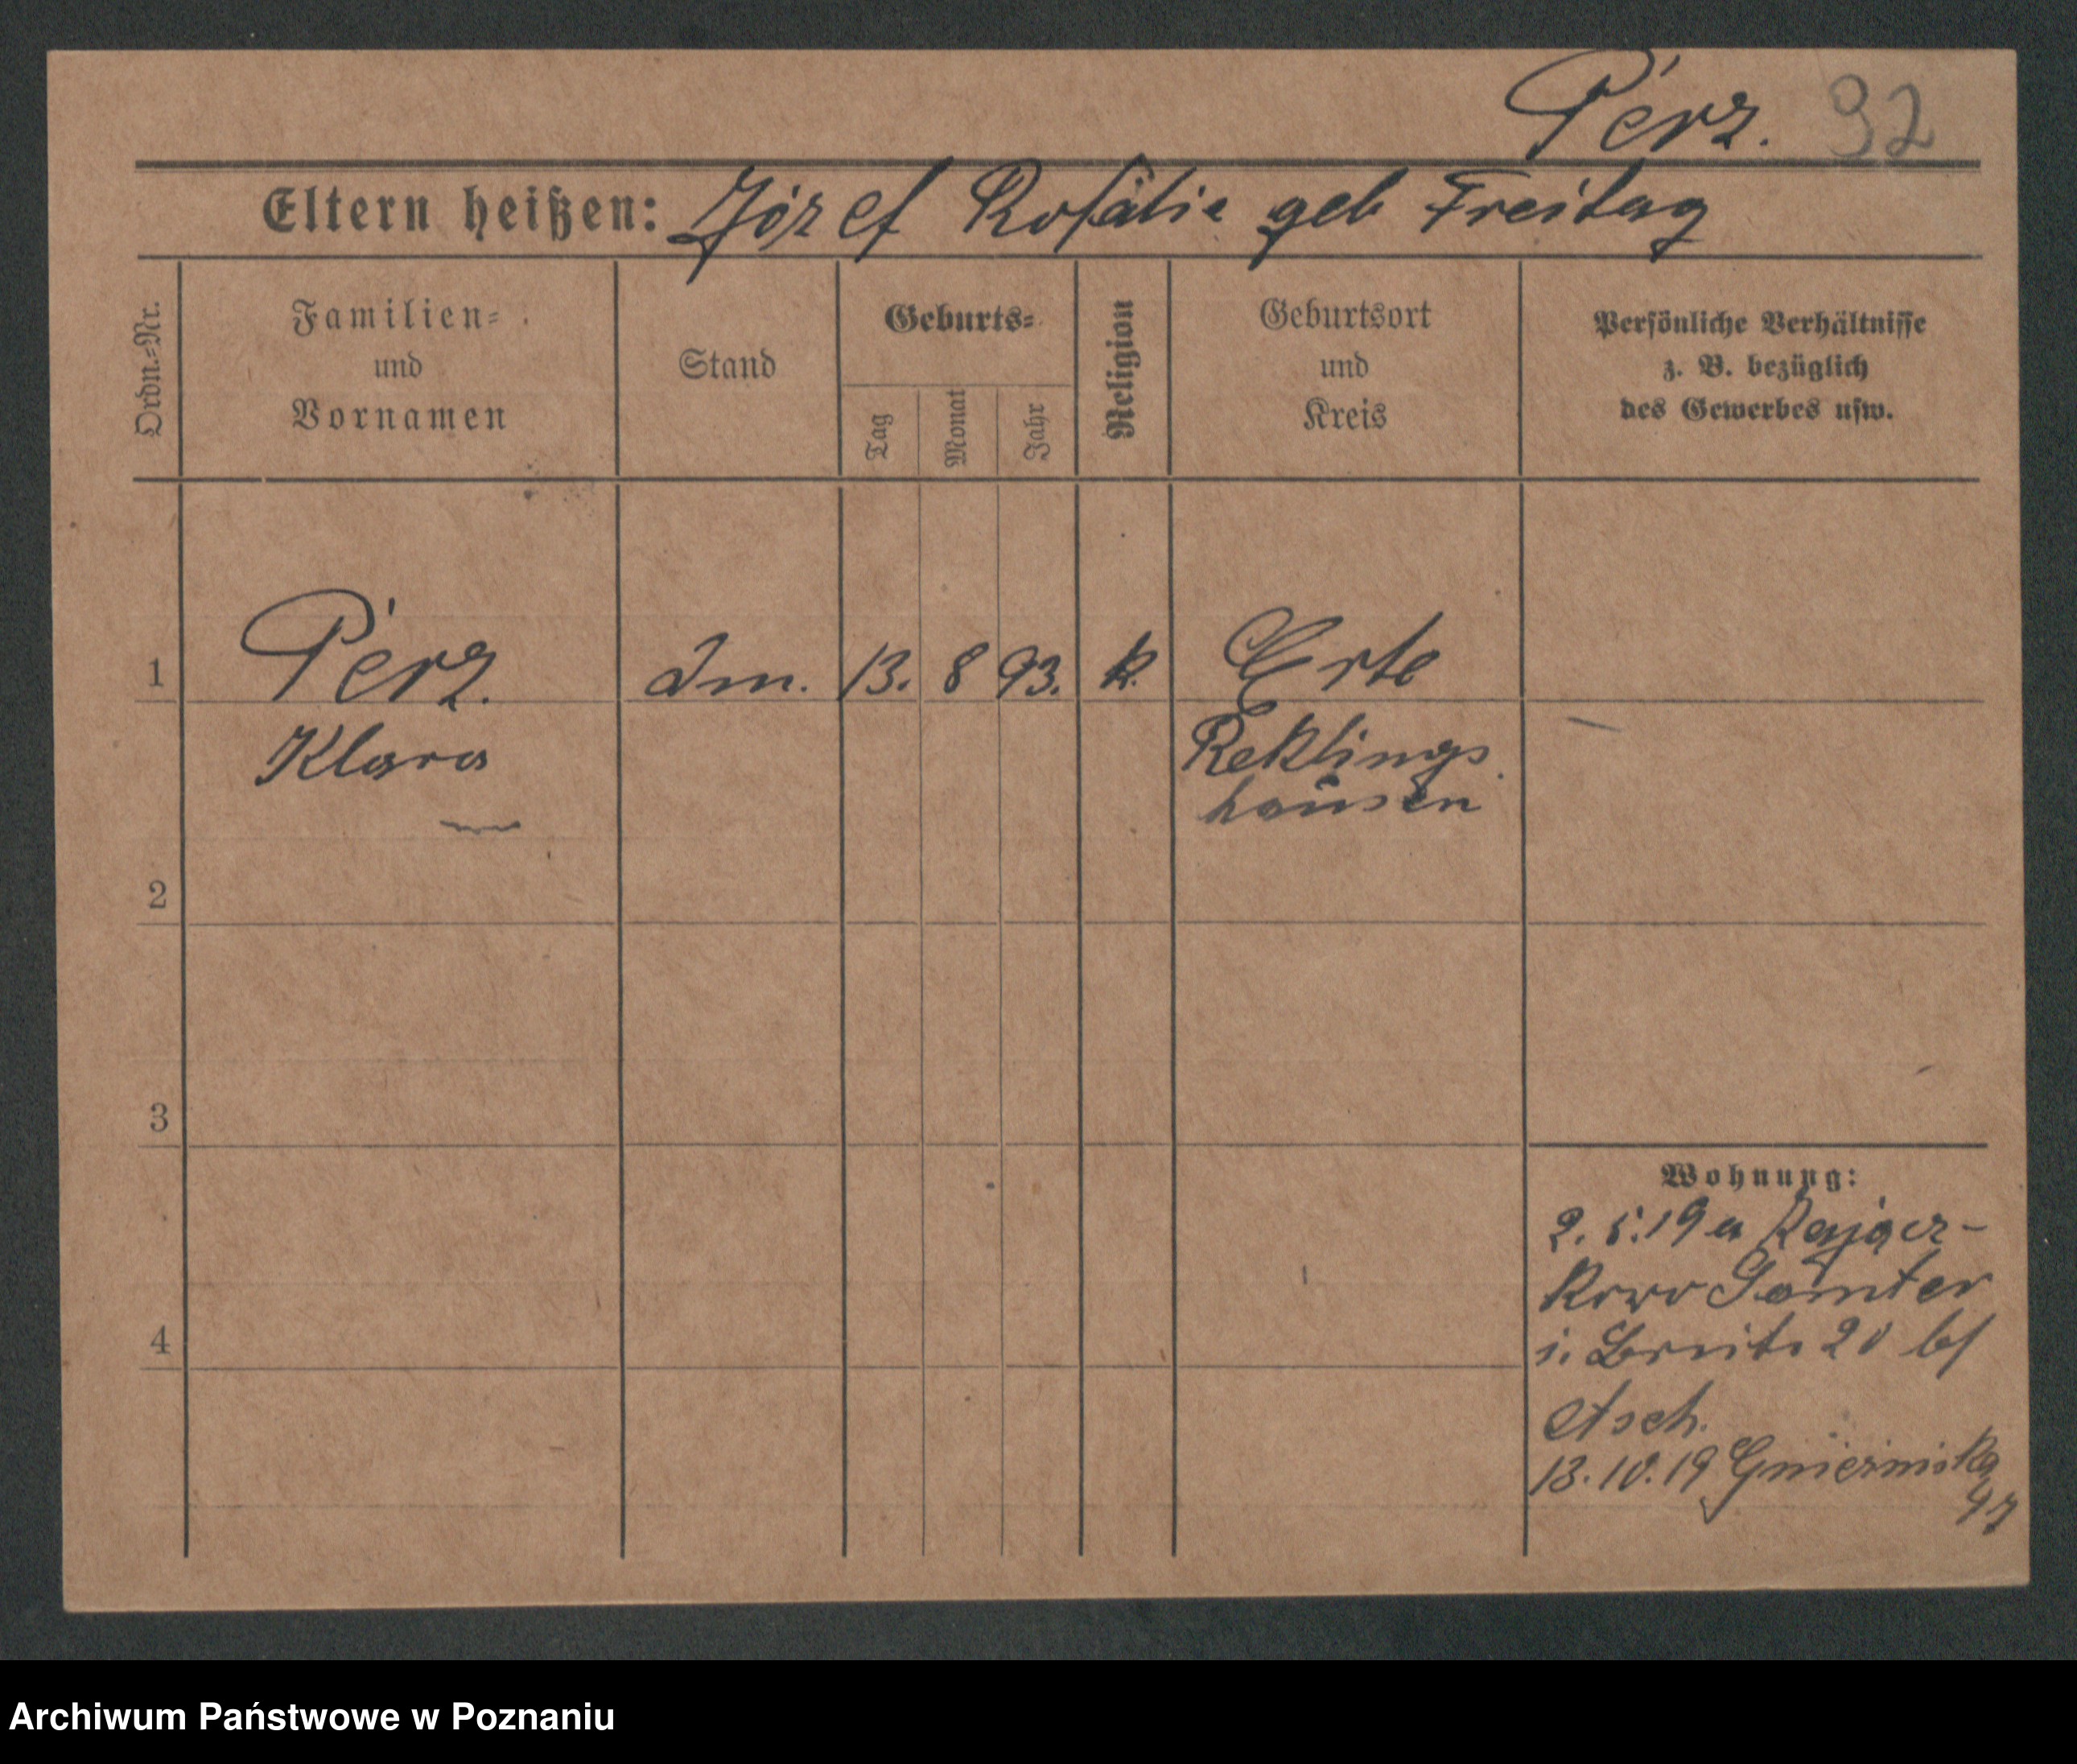 Perz. 92
Eltern heißen: Józef Rosalie geb Freitag
Ordn.=Nr.
Familien=
und
Vornamen
Stand
Geburts=
Tag
Monat
Jahr
Religion
Geburtsort
und
Kreis
Persönliche Verhältnisse
z. B. bezüglich
des Gewerbes usw.
1 Perz. 13. 8 93. k. Erle
Klara Reklings
hausen
2
3
4
Wohnung:
2. 5. 19 a
Samter
20 bf
Asch.
13. 10. 19
47
Archiwum Państwowe w Poznaniu